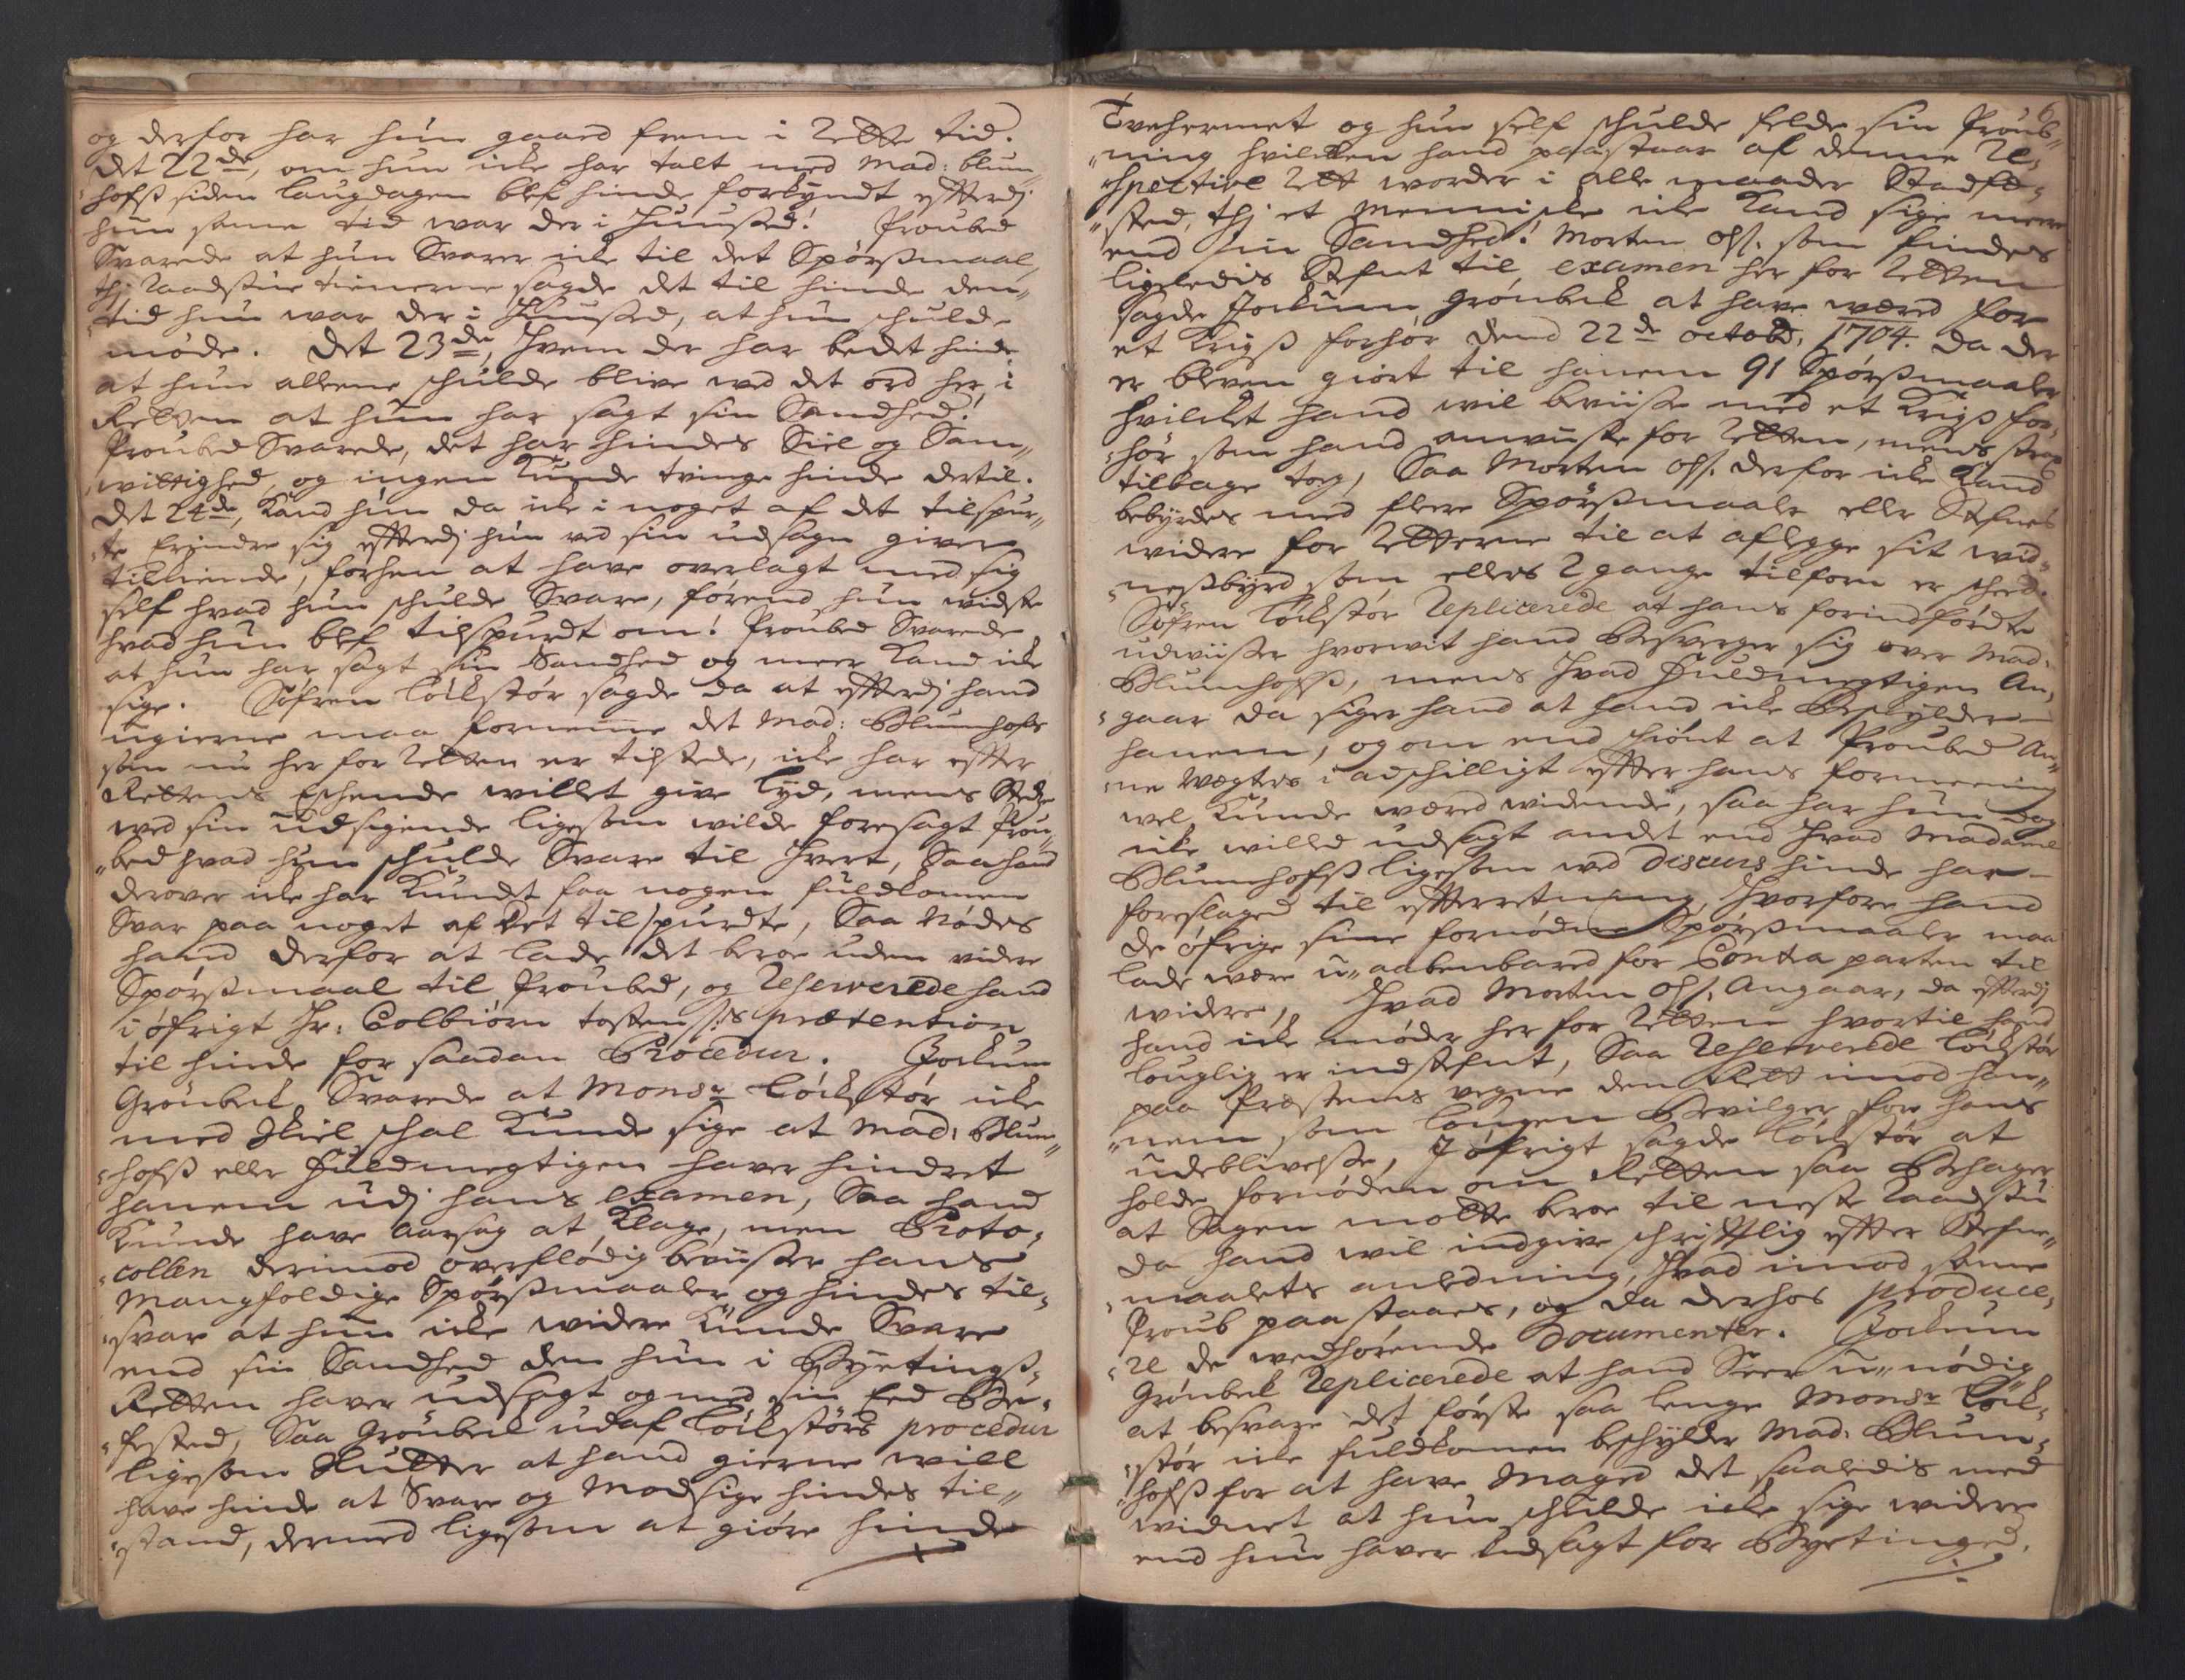 og derfor har hun gaaed frem i Rette tid.
Det 22de, om hun icke har talt med Mad: Blum„
„hofs siden laugdagen blef hinde forkyndt efftterdj
hun samme tid war der i Huused! Proubed
Svarede at hun Svarer icke til det Spörsmaal,
thj Raadstue tienerne sagde det til hinde den„
tid hun war der i Huused, at hun schulde
møde. Det 23de, Hvem der har bedet hinde
at hun allene schulde blive wed det ord her i
Retten at hun har sagt sin Sandhed!
Proubed Svarede, det har hindes Siel og Sam„
„wittighed, og ingen Kunde tvinge hinde dertil.
Det 24de, Kand hun da icke i noget af det tilspur„
„te Erindre sig effterdj hun wed sin udsagn giver
tilkiende, forhen at have overlagt med sig
self hvad hun schulde Svare, førend hun widste
hvad hun blef tilspurdt om! Proubed Svarede
at hun har sagt sin Sandhed og meer Kand icke
sige. Søfren Löckstør sagde da at effterdj hand
ugierne maa fornemme det Mad: Blumhofs
som nu her for Retten er tilstede, icke har effter
Rettens Eschende willet give lyd, mens Stedse
wed sin udsigende ligesom wilde foresagt Prou„
„bed hvad hun schulde Svare til Hvert, Saa hand
derover icke har Kundet faa nogen fuldkomen
Svar paa noget af det tilspurdte, Saa Nødes
hand derfor at lade det beroe uden widere
Spörsmaal til Proubed, og Reserverede hand
i øfrigt Hr: Colbiørn tostens:s prætention
til hinde for saadan Procedur. Jockum
Grönbeck Svarede at Monsr Löckstør icke
med Skiel schal Kunde sige at Mad: Blum„
„hofs eller Fuldmegtigen haver hindret
hanem udj hans Examen, Saa hand
Kunde have Aarsag at Klage, men Proto„
„collen derimod overflødig beviiser hans
Mangfoldige Spörsmaaler og hindes til„
„svar at hun icke widere Kunde Svare
end sin Sandhed den hun i Byetings„
Retten haver udsagt og med sin Eed Be„
„fested, Saa Grönbeck udaf Löckstörs procedur
ligesom Slutter at hand gierne will
have hinde at Svare og Modsige hindes til„
„stand, dermed ligesom at giøre hinde
6
Tvehermet og hun self schulde felde sin Proub„
„ning hvilcken hand paastaar af denne Re„
„spective Rett worder i alle maader Stadfæ„
„sted, thj et Menniske icke Kand sige meere
end sin Sandhed! Morten Ols: som findes
ligeledis Stefnt til Examen her for Retten
sagde Jockum Grönbeck at have wæred for
et Krigs forhør dend 22de octobr: 1704. da der
er bleven giort til hanem 91 Spörsmaaler
Hvilcket hand wil beviise med et Krigs for„
„hör som hand anwiiste for Retten, mens strax
tilbage tog, Saa Morten Ols: derfor icke Kand
bebyrdes med flere Spörsmaaler eller Stefnes
widere for Retterne til at aflegge sit wid„
„nesbyrd, som ellers 2 gange tilforn er scheed.
Søfren Löckstør Replicerede at hans forindførdte
udwiiser hvorwit hand Besverger sig over Mad:
Blumhofs, mens Hvad Fuldmegtigen An„
„gaar da siger hand at hand icke Beschylder
hanem, og om end schiönt at Proubed An„
„ne Wægters i adschilligt effter hans formeening
wel Kunde wæred widende, saa har hun dog
icke willed udsagt andet end Hvad Madame
Blumhofs ligesom wed Discurs hinde har
foreslaged til effterretning, Hvorfore hand
de øfrige sine fornødne Spörsmaaler maa
lade være u„aabenbared for Contra parten til
widere, Hvad Morten Ols: Angaar, da effterdj
hand icke møder her for Retten hvortil hand
louglig er indstefnt, Saa Reserverede Löckstør
paa Præstens vegne den Rett imod han„
„nem som louen Bevilger for hans
udeblivelse, J øfrigt sagde Löckstør at
holde fornøden om Retten saa Behager
at Sagen motte beroe til neste Raadstue
da hand wil indgive schrifftlig effter Stefne„
„maalets anledning, Hvad imod samme
Proub paastaaes, og da derhos produce„
„re de wedhørende Documenter. Jockum
Grönbeck Replicerede at hand Seer u„nödig
at besvare det første saa lenge Monsr Löck„
„stør icke fuldkomen beschylder Mad: Blum„
„hofs for at have Maged det saaledis med
widnet at hun schulde icke sige widere
end hun haver udsagt for Byetinged.